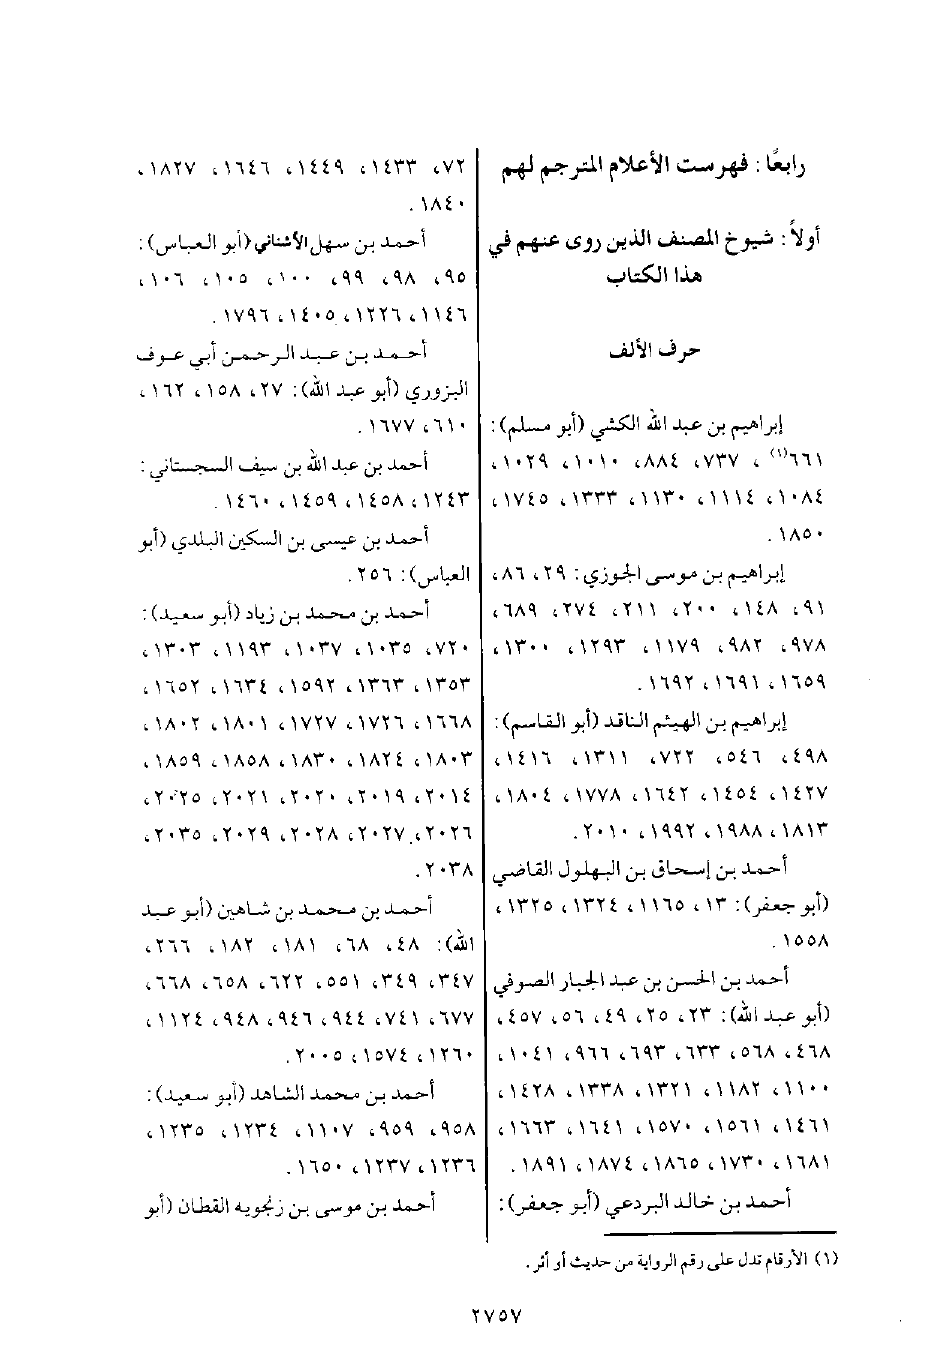 رابعًا: فهرست الأعلام المترجم لهم
أولاً: شيوخ المصنف الذين روى عنهم في
هذا الكتاب
حرف الألف
إبراهيم بن عبد الله الكشي (أبو مسلم):
٦٦١(١)، ٧٣٧، ٨٨٤، ١٠١٠، ١٠٢٩،
١٠٨٤، ١١١٤، ١١٣٠، ١٣٣٣، ١٧٤٥،
١٨٥٠.
إبراهيم بن موسى الجوزي: ٢٩، ٨٦،
٩١، ١٤٨، ٢٠٠، ٢١١، ٢٧٤، ٦٨٩،
٩٧٨، ٩٨٢، ١١٧٩، ١٢٩٣، ١٣٠٠،
١٦٥٩، ١٦٩١، ١٦٩٢.
إبراهيم بن الهيثم الناقد (أبو القاسم):
٤٩٨، ٥٤٦، ٧٢٢، ١٣١١، ١٤١٦،
١٤٢٧، ١٤٥٤، ١٦٤٢، ١٧٧٨، ١٨٠٤،
١٨١٣، ١٩٨٨، ١٩٩٢، ٢٠١٠.
أحمد بن إسحاق بن البهلول القاضي
(أبو جعفر): ١٣، ١١٦٥، ١٣٢٤، ١٣٢٥،
١٥٥٨.
أحمد بن الحسن بن عبد الجبار الصوفي
(أبو عبد الله): ٢٣، ٢٥، ٤٩، ٥٦، ٤٥٧،
٤٦٨، ٥٦٨، ٦٣٣، ٦٩٣، ٩٦٦، ١٠٤١،
١١٠٠، ١١٨٢، ١٣٢١، ١٣٣٨، ١٤٢٨،
١٤٦١، ١٥٦١، ١٥٧٠، ١٦٤١، ١٦٦٣،
١٦٨١، ١٧٣٠، ١٨٦٥، ١٨٧٤، ١٨٩١.
أحمد بن خالد البردعي (أبو جعفر):
٧٢، ١٤٣٣، ١٤٤٩، ١٦٤٦، ١٨٢٧،
١٨٤٠.
أحمد بن سهل الأشناني (أبو العباس):
٩٥، ٩٨، ٩٩، ١٠٠، ١٠٥، ١٠٦،
١١٤٦، ١٢٢٦، ١٤٠٥، ١٧٩٦.
أحمد بن عبد الرحمن أبي عوف
البزوري (أبو عبد الله): ٢٧، ١٥٨، ١٦٢،
٦١٠، ١٦٧٧.
أحمد بن عبد الله بن سيف السجستاني:
١٢٤٣، ١٤٥٨، ١٤٥٩، ١٤٦٠.
أحمد بن عيسى بن السكين البلدي (أبو
العباس): ٢٥٦.
أحمد بن محمد بن زياد (أبو سعيد):
٧٢٠، ١٠٣٥، ١٠٣٧، ١١٩٣، ١٣٠٣،
١٣٥٣، ١٣٦٣، ١٥٩٢، ١٦٣٤، ١٦٥٢،
١٦٦٨، ١٧٢٦، ١٧٢٧، ١٨٠١، ١٨٠٢،
١٨٠٣، ١٨٢٤، ١٨٣٠، ١٨٥٨، ١٨٥٩،
٢٠١٤، ٢٠١٩، ٢٠٢٠، ٢٠٢١، ٢٠٢٥،
٢٠٢٦، ٢٠٢٧، ٢٠٢٨، ٢٠٢٩، ٢٠٣٥،
٢٠٣٨.
أحمد بن محمد بن شاهين (أبو عبد
الله): ٤٨، ٦٨، ١٨١، ١٨٢، ٢٦٦،
٣٤٧، ٣٤٩، ٥٥١، ٦٢٢، ٦٥٨، ٦٦٨،
٦٧٧، ٧٤١، ٩٤٤، ٩٤٦، ٩٤٨، ١١٢٤،
١٢٦٠، ١٥٧٤، ٢٠٠٥.
أحمد بن محمد الشاهد (أبو سعيد):
٩٥٨، ٩٥٩، ١١٠٧، ١٢٣٤، ١٢٣٥،
١٢٣٦، ١٢٣٧، ١٦٥٠.
أحمد بن موسى بن زنجويه القطان (أبو
(١) الأرقام تدل على رقم الرواية من حديث أو أثر.
٢٧٥٧